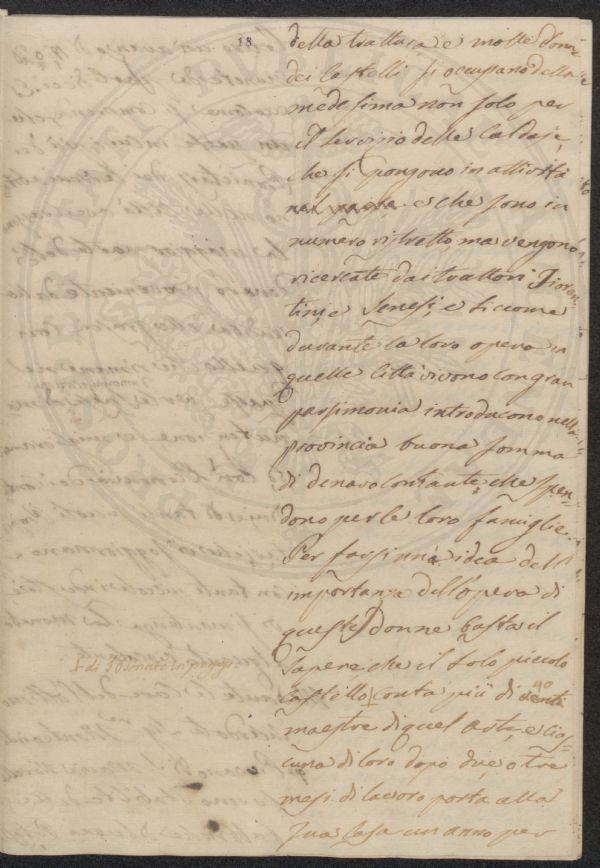 18
della trattura e molte donne
dei castelli si occupano della
medesima non solo per
il servizio delle Caldaje,
che si pongono in attività
e che sono in
numero ristretto ma vengono
ricercate dai trattori Fioren=
tini, e Senesi, e siccome
durante la loro opera in
quelle Città vivono con gran
parsimonia introducono nella
provincia buona somma
di denaro contante, che spen=
dono per le loro famiglie.
Per farsi una idea dell'
importanza dell'opera di
queste donne basta il
sapere, che il solo piccolo
castello conta più di 40 venti
maestre di quel arte, e cias=
cuna di loro dopo due, o tre
mesi di lavoro porta alla
sua casa un anno per